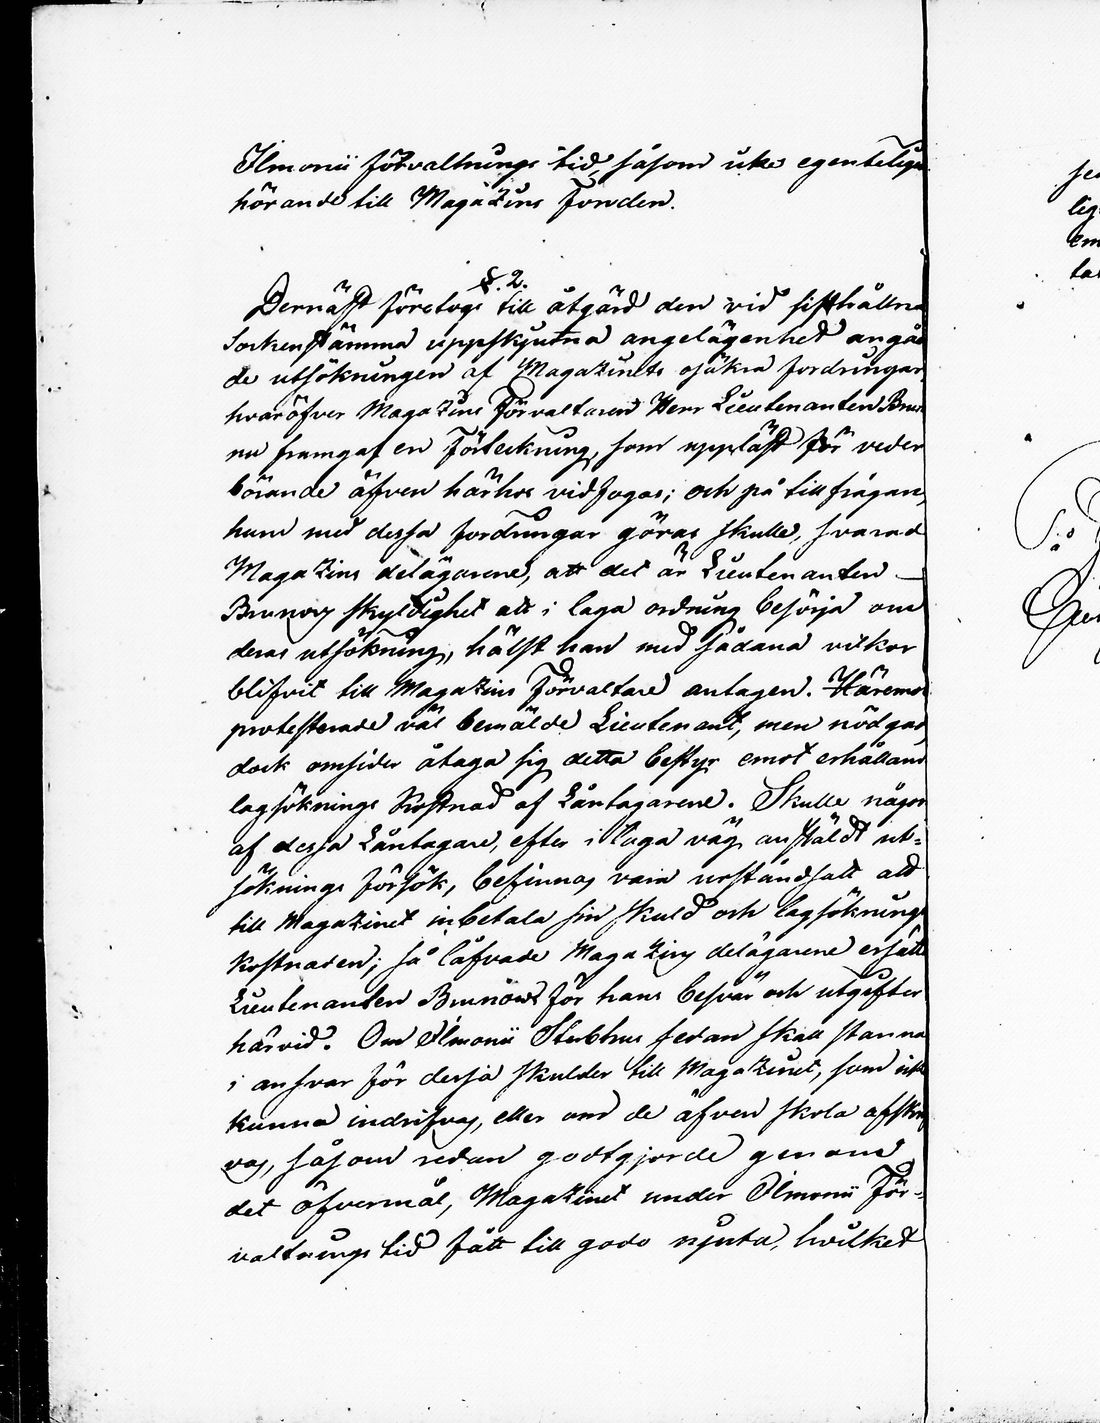 Ilmonii förvaltnings tid, såsom icke egenteligen
hörande till Magazins Fonden.
§. 2.
Dernäst företogs till åtgärd den vid sisthållna
Sockenstämma uppskjutna angelägenhet angåen
de utsökningen af Magazinets osäkra fordringar,
hvaröfver Magazins Förvaltaren Herr Lieutenanten Brun
nu framgaf en Förteckning, som uppläst för veder
börande äfven härhos vidfogas; och på tillfrågan,
huru med dessa fordringar göras skulle, svarad
Magazins delägarene, att det är Lieutenanten
Brunows skyldighet att i laga ordning besörja om
deras utsökning, hälst han med sådana vilkor
blifvit till Magazins Förvaltare antagen. Häremot
protesterade väl bemälde Lieutenant, men nödgad
dock omsider åtaga sig detta bestyr emot erhålland
lagsöknings Kostnad af Låntagarene. Skulle någon
af dessa Låntagare, efter i laga väg anstäldt ut-
söknings försök, befinnas vara urståndsatt att
till Magazinet inbetala sin skuld och lagsöknings
Kostnaden; så låfvade Magazins delägarene ersätta
Lieutenanten Brunow för hans besvär och utgifter
härvid. Om Ilmonii Sterbhus sedan skall stanna
i ansvar för dessa skulder till Magazinet, som icke
kunna indrifvas, eller om de äfven skola afskrif
vas, såsom redan godtgjorde genom
det öfvermål, Magazinet under Ilmonii För-
valtnings tid fått till godo njuta, hvilket